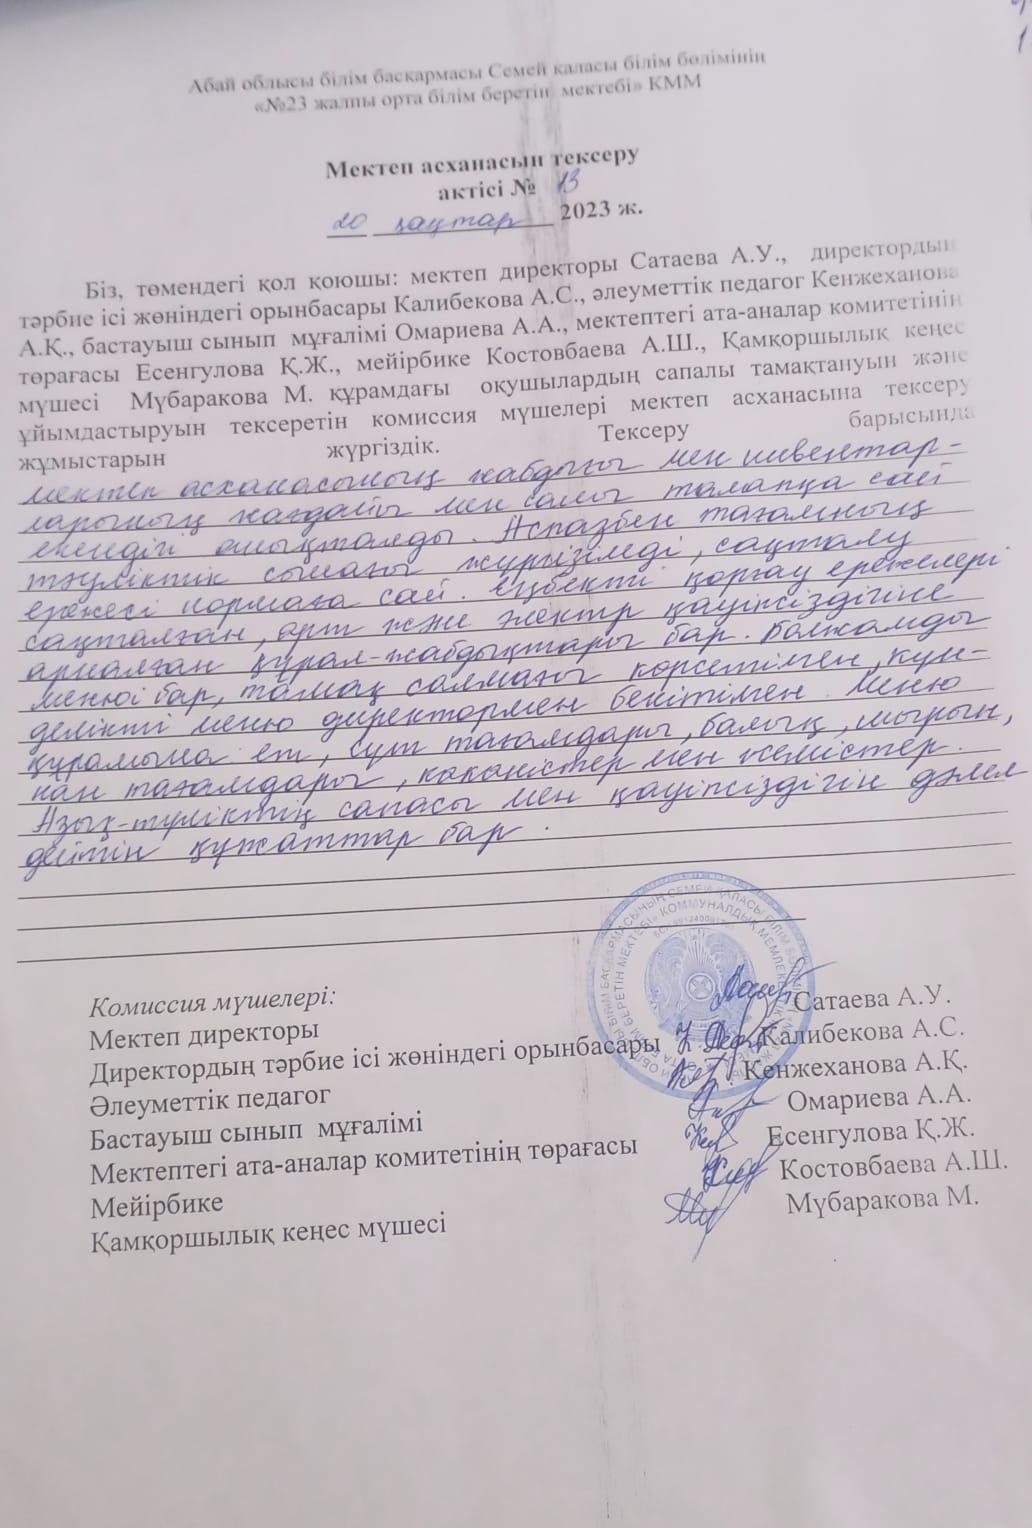 Абай облысы білім басқармасы Семей қаласы білім бөлімінің
«№23 жалпы орта білім беретін мектебі» КММ
Мектеп асханасын тексеру
актісі № 13
20 қаңтар 2023 ж.
Біз, төмендегі қол қоюшы: мектеп директоры Сатаева А.У., директордың
тәрбие ісі жөніндегі орынбасары Калибекова А.С., әлеуметтік педагог Кенжеханова
А.Қ., бастауыш сынып мұғалімі Омариева А.А., мектептегі ата-аналар комитетінің
төрағасы Есенгулова Қ.Ж., мейірбике Костовбаева А.Ш., Қамқоршылық кеңес
мүшесі Мүбаракова М. құрамдағы оқушылардың сапалы тамақтануын және
ұйымдастыруын тексеретін комиссия мүшелері мектеп асханасына тексеру
жұмыстарын жүргіздік. Тексеру барысында
мектеп асханасының жабдығы мен инвентар-
ларының жағдайы мен саны талапқа сай
екендігі анықталды. Аспазбен тағамның
тәуліктік сынағы жүргізілді, сақталу
ережесі нормаға сай. Еңбекті қорғау ережелері
сақталған, өрт және электр қауіпсіздігіне
арналған құрал-жабдықтары бар. Болжамды
менюі бар, тамақ салмағы көрсетілген, күн-
делікті меню директормен бекітілген. Меню
құрамына ет, сүт тағамдары, балық, шырын,
нан тағамдары, көкөністер мен жемістер.
Азық-түліктің сапасы мен қауіпсіздігін дәлел
дейтін құжаттар бар.
Комиссия мүшелері:
Мектеп директоры Сатаева А.У.
Директордың тәрбие ісі жөніндегі орынбасары Калибекова А.С.
Әлеуметтік педагог Кенжеханова А.Қ.
Бастауыш сынып мұғалімі Омариева А.А.
Мектептегі ата-аналар комитетінің төрағасы Есенгулова Қ.Ж.
Мейірбике Костовбаева А.Ш.
Қамқоршылық кеңес мүшесі Мүбаракова М.